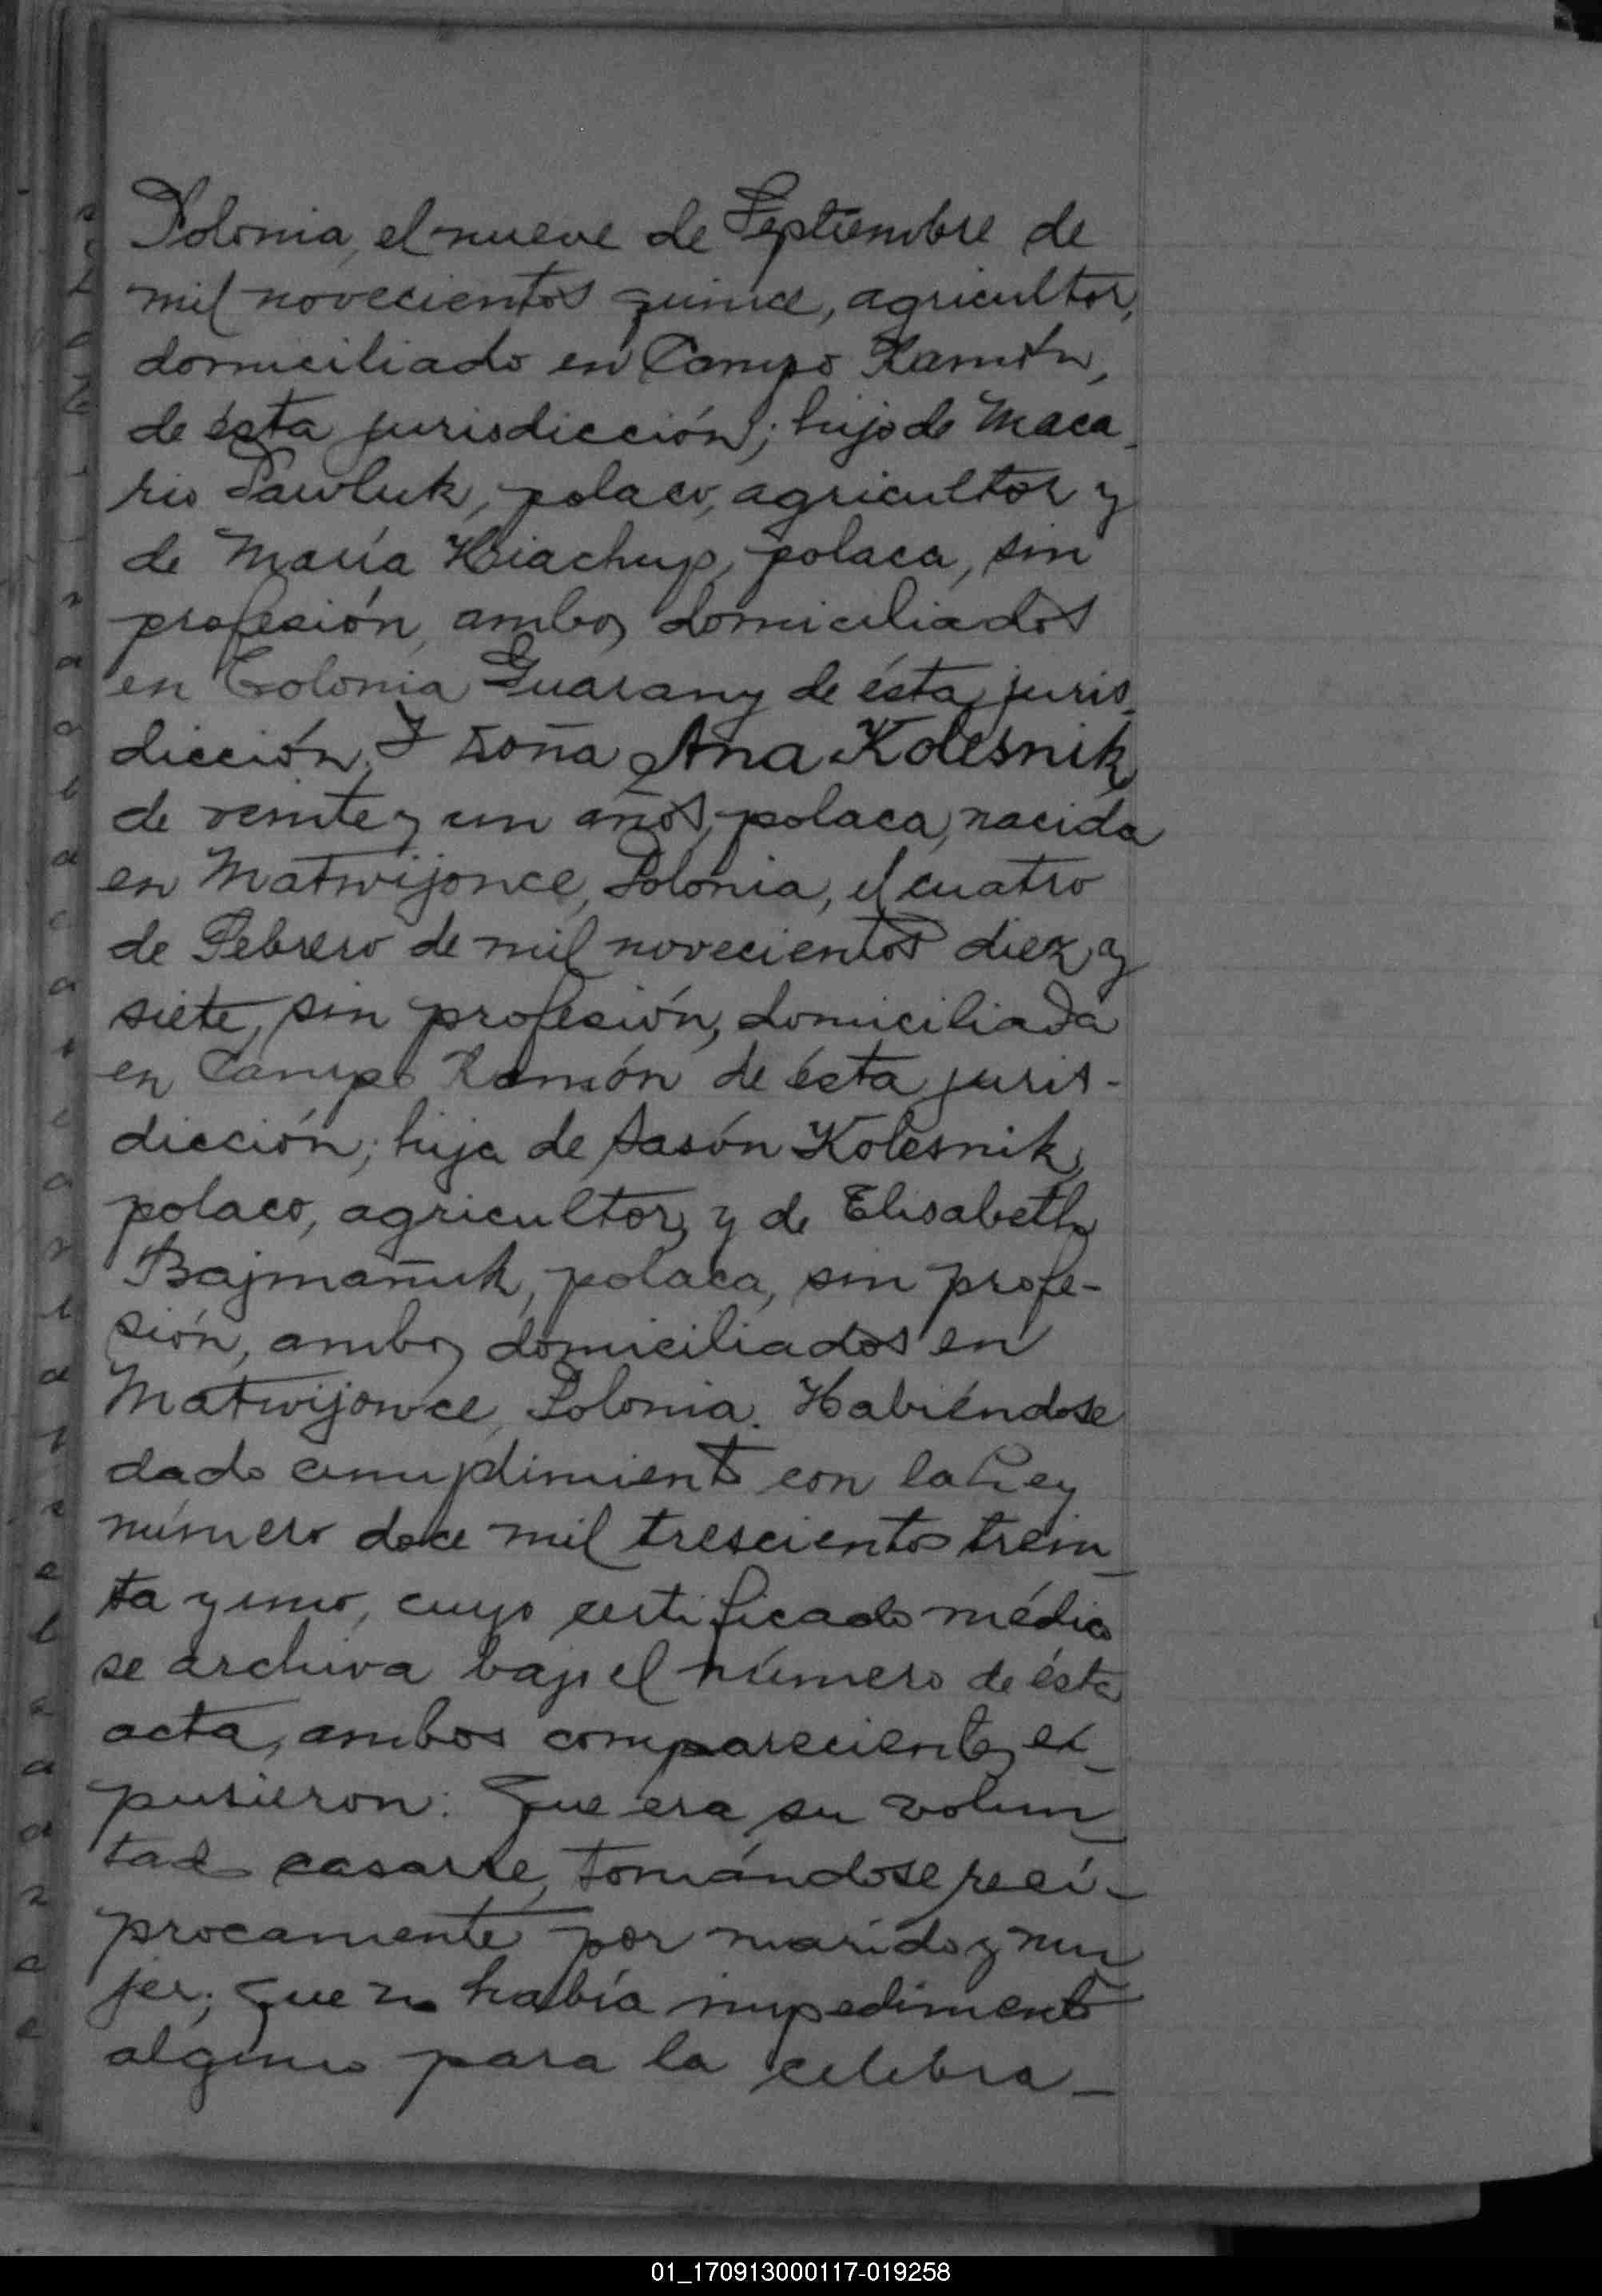 Polonia, el nueve de Septiembre de
mil novecientos quince, agricultor,
domiciliado en Campo Ramón,
de ésta jurisdicción; hijo de Maca-
rio Pawluk, polaco, agricultor y
de María Kriachup, polaca, sin
profesión, ambos domiciliados
en Colonia Guarany de ésta juris-
dicción. Y Doña Ana Kolesnik,
de veinte y un años, polaca, nacida
en Matwijonce, Polonia, el cuatro
de Febrero de mil novecientos diez y
siete, sin profesión, domiciliada
en Campo Ramón de ésta juris-
dicción; hija de Sasón Kolesnik,
polaco, agricultor, y de Elisabeth
Bajmañuk, polaca, sin profe-
sión, ambos domiciliados en
Matwijowce, Polonia. Habiéndose
dado cumplimiento con la Ley
número doce mil trescientos trein-
ta y uno, cuyo certificado médico
se archiva bajo el número de ésta
acta, ambos comparecientes ex-
pusieron: Que era su volun-
tad casarse, tomándose recí-
procamente por marido y mu-
jer; que no había impedimento
alguno para la celebra-
01_170913000117-019258